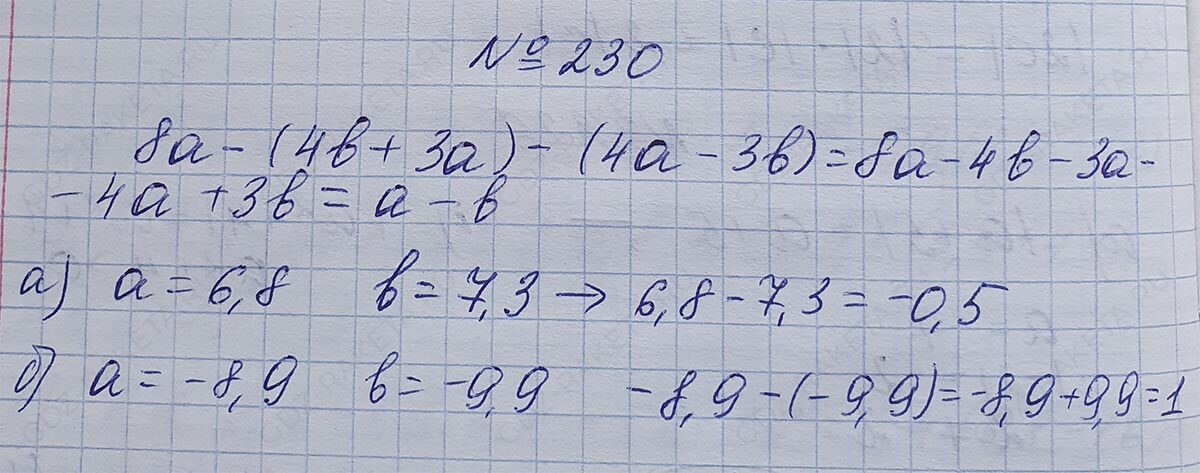 № 230
8a - (4b + 3a) - (4a - 3b) = 8a - 4b - 3a -
- 4a + 3b = a - b
а) a = 6,8 b = 7,3 → 6,8 - 7,3 = -0,5
б) a = -8,9 b = -9,9 -8,9 - (-9,9) = -8,9 + 9,9 = 1